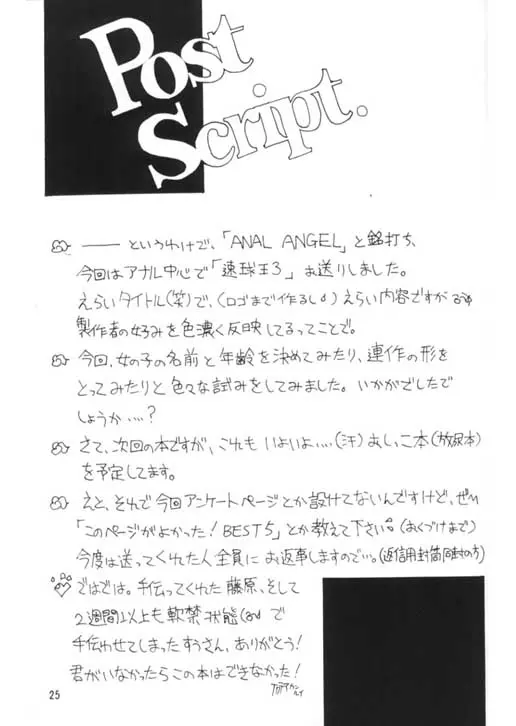 Post
Script.
——というわけで、「ANAL ANGEL」と銘打ち、
今回はアナル中心で「速球王3」お送りしました。
えらいタイトル(笑)で、(ロゴまで作るし)えらい内容ですが
製作者の好みを色濃く反映してるってことで。
今回、女の子の名前と年齢を決めてみたり、連作の形を
とってみたりと色々な試みをしてみました。いかがでしたで
しょうか…?
さて、次回の本ですが、これもいよいよ…(汗)おしっこ本(放尿本)
を予定してます。
えと、それで今回アンケートページとか設けてないんですけど、ぜひ
「このページがよかった!BEST5」とか教えて下さい。(おくづけまで)
今度は送ってくれた人全員にお返事しますので…。(返信用封筒同封の方)
ではでは。手伝ってくれた藤原、そして
2週間以上も軟禁状態で
手伝わせてしまったすうさん、ありがとう!
君がいなかったらこの本はできなかった!
25